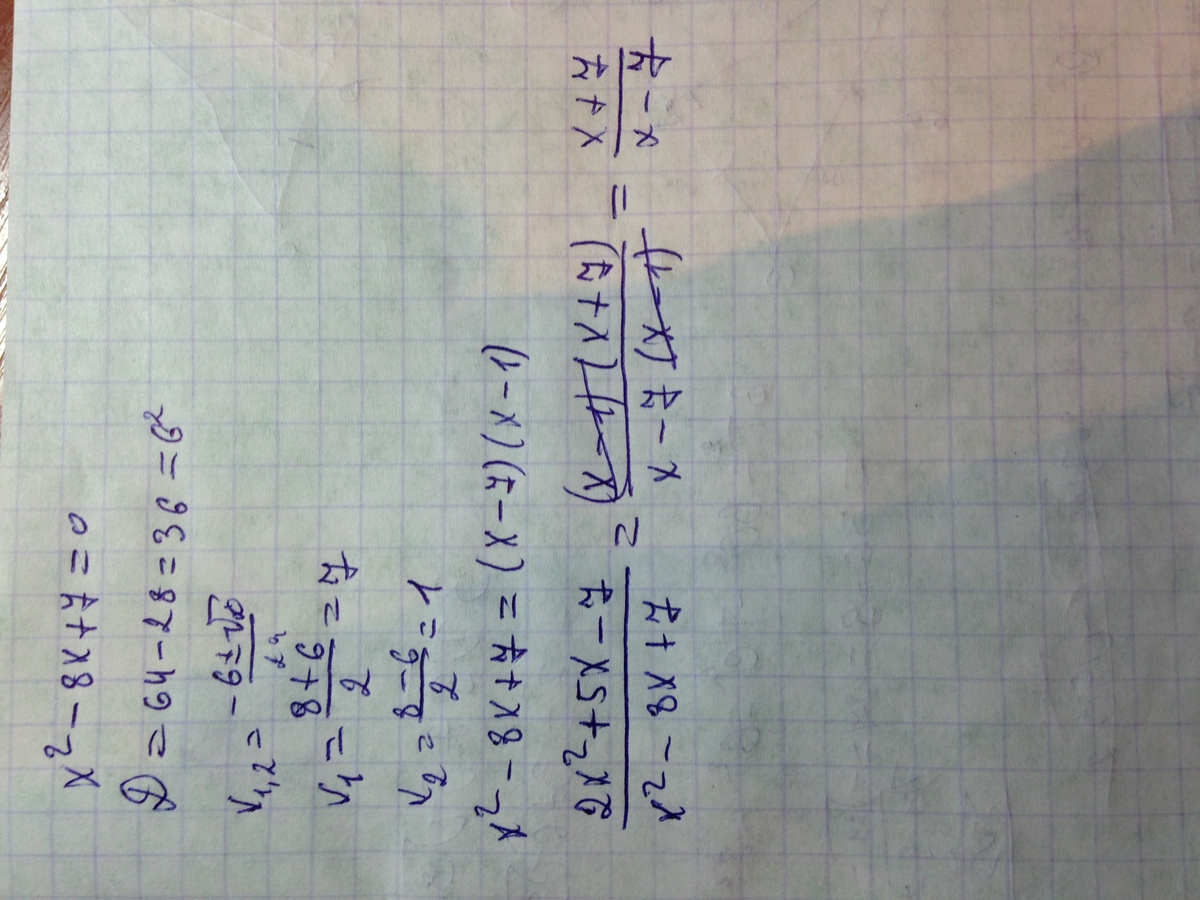 x² - 8x + 7 = 0
D = 64 - 28 = 36 = 6²
x₁,₂ = (-б ± √D)/(2a)
x₁ = (8 + 6)/2 = 7
x₂ = (8 - 6)/2 = 1
x² - 8x + 7 = (x - 7)(x - 1)
(2x² + 5x - 7)/(x² - 8x + 7) = ((x - 1)(x + 7))/(x - 7(x - 1)) = (x + 7)/(x - 7)